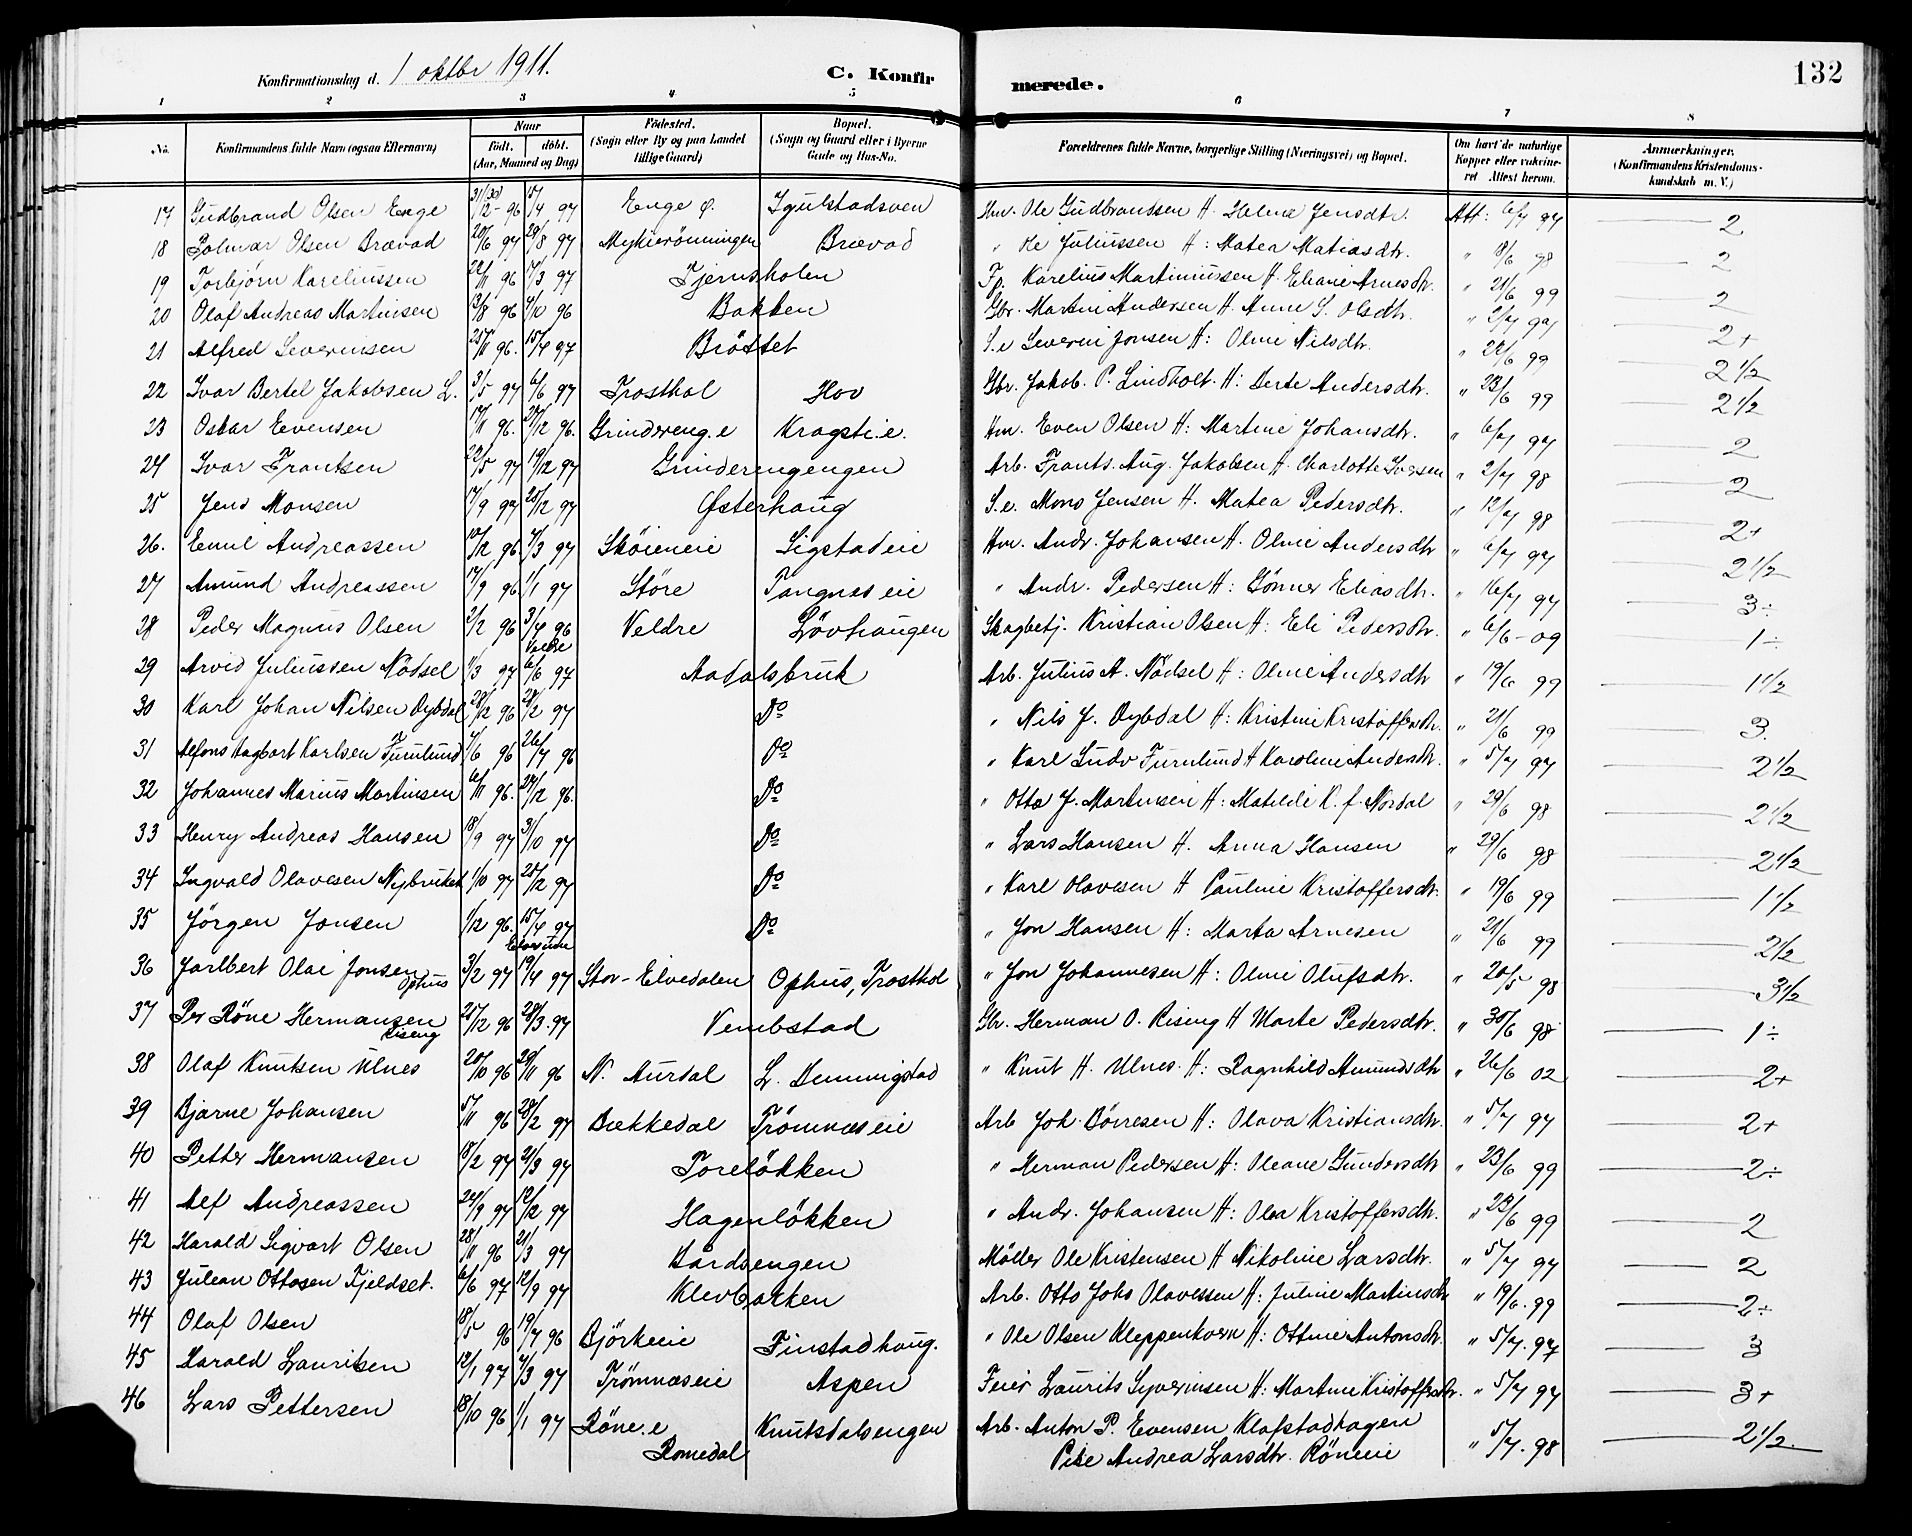 Konfirmationsdag d. 1 oktbr 1911. C. Konfirmerede. 132
1 2 3 4 5 6 7 8
No. Konfirmandens fulde Navn (ogsaa Efternavn) Naar født. døbt. (Aar, Maaned og Dag) Fødested. (Sogn eller By og paa Landet tillige Gaard) Bopæl. (Sogn og Gaard eller i Byerne Gade og Hus-No. Forældrenes fulde Navne, borgerlige Stilling (Næringsvei) og Bopæl. Om havt de naturlige Kopper eller vakcineret Attest herom. Anmærkninger. (Konfirmandens Kristendomskundskab m. V.)
17 Gudbrand Olsen Enge 31/12 (30) - 96 15/4 97 Enge ø. Igulstadsven Hm. Ole Gudbrandsen H. Helene Jensdtr. Att: 6/7 97 2
18 Palmar Olsen Brævad 20/6 97 29/8 97 Mykjerönningen Brævad " Ole Juliussen H: Matea Matiasdtr. " 18/6 98 2
19 Torbjörn Kareliussen 22/11 96 17/3 97 Tjernsholen Fp. Karelius Martiniussen H. Eliane Arnesdtr. " 21/6 99 2
20 Olaf Andreas Martinsen 13/8 96 4/10 96 Bakken Gbr. Martin Andersen H. Anne S. Olsdtr. " 2/7 97 2+
21 Alfred Severinsen 25/11 96. 15/4 97 Bröttet S.e Severin Jonsen H: Oline Nilsdtr. " 22/6 99 2 1/2
22 Ivar Bertel Jakobsen L. 3/5 97 6/6 97 Frosthol Hov Gbr. Jakob. P. Lindholt. H: Derte Andersdtr. " 23/6 99 2 1/2
23 Oskar Evensen 17/11 96. 27/12 96. Grindereng.e Kragsti.e. Hm. Even Olsen H: Martine Johansdtr. " 6/7 97 2
24 Ivar Frantsen 22/5 97 19/12 97 Grinderengengen Arb. Frants. Aug. Jakobsen H. Charlotte Iversen " 2/7 98 2
25 Jens Monsen 17/9 97 25/12 97 Østerhaug S.e. Mons Jensen H. Matea Pedersdtr. " 12/7 98 2+
26. Emil Andreassen 10/12 96. 7/3 97 Sköieneie Sigstadeie Hm. Andr. Johansen H. Oline Andersdtr " 6/7 97 2 1/2
27 Amund Andreassen 17/9 96 1/1 97 Störe Tangnæseie " Andr. Pedersen H: Gönner Eliasdtr. " 16/7 97 3÷
28 Peder Magnus Olsen 2/2 96 3/4 96 Veldre Veldre Lövhaugen Skogbetj. Kristian Olsen H: Eli Pedersdtr. " 6/6-09 1÷
29 Arvid Juliussen Nödsel 1/3 97 6/6 97 Aadalsbruk Arb. Julius A. Nödsel H: Oline Andersdtr " 19/6 99 1 1/2
30 Karl Johan Nilsen Dybdal 28/12 96 28/2 97 Do " Nils J. Dybdal H: Kristine Kristoffersdtr. " 21/6 99 3.
31 Alfons Hagbart Karlsen Furulund 7/6 96 26/7 96 Do " Karl Ludv Furulund H Karoline Andersdtr. " 5/7 97 2 1/2
32 Johannes Marius Martinsen 6/11 96. 27/12 96. Do " Otto J. Martinsen H: Matilde K. f. Nordal " 29/6 98 2 1/2
33 Henry Andreas Hansen 18/9 97 31/10 97 Do " Lars Hansen H. Anna Hansen " 29/6 98 2 1/2
34 Ingvald Olavesen Nybruket 1/10 97 25/12 97 Do " Karl Olavesen H Pauline Kristoffersdtr. " 19/6 99 1 1/2
35 Jörgen Jonsen 1/12 96. 15/4 97 Do " Jon Hansen H: Marta Arnesen " 21/6 99 2 1/2
36 Jarlbert Olai Jonsen Ophus 3/2 97 Elverum 19/4 97 Stor-Elvedalen Ophus, Frosthol " Jon Johannesen H: Oline Olufsdtr. " 20/5 98 3 1/2
37 Per Röne Hermansen Riseng 25/12 96 28/3.97 Vembstad Gbr. Herman O. Riseng H Marte Pedersdtr. " 30/6 98 1÷
38 Olaf Knutsen Ulnes 20/10 96 29/11 96 N. Aurdal L. Demmigstad " Knut H. Ulnes. H: Ragnhild Amundsdtr " 26/6 02 2+
39 Bjarne Johansen 5/11 96 28/2 97 Bækkedal Trömnæseie Arb Joh. Börresen H: Olava Kristiansdtr. " 5/7 97 2+
40 Petter Hermansen 18/2 97 21/3 97 Torelökken " Herman Pedersen H: Oleane Gundersdtr " 23/6 99 2÷
41 Alf Andreassen 24/9 97 12/12 97 Hagenlökken " Andr. Johansen H: Olea Kristoffersdtr. " 23/6 99 2
42 Harald Sigvart Olsen 28/11 96 21/3 97 Bårdsengen Möller Ole Kristensen H Nikoline Larsdtr. " 5/7 97 2
43 Julean Ottosen Fjeldset. 6/6 97 12/9 97 Klevbakken Arb. Otto Johs Olavessen H: Juline Martinsdtr " 19/6.99 2÷
44 Olaf Olsen 18/5 96 19/7 96 Björkeeie Finstadhaug. " Ole Olsen Kleppenkoern H: Ottine Antonsdtr. " 5/7.97 3
45 Harald Lauritsen 12/1 97 7/3 97 Trömnæseie Aspen Feier Laurits Syverinsen H: Martine Kristoffersdtr. " 5/7 97 3+
46 Lars Pettersen 18/10 96 1/1 97 Röne.e Romedal Knutsdalsengen Arb. Anton P. Evensen Klafstadhagen " 5/7.98 2 1/2.
Pike Andrea Larsdtr. Röneeie